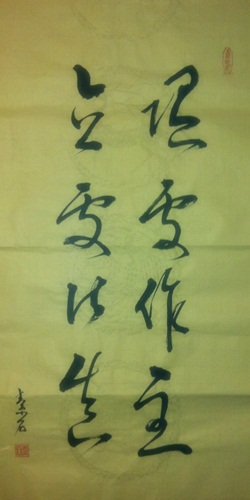 隨處作主
立處皆真